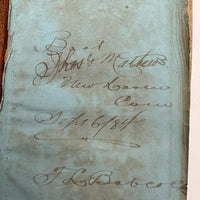 Bot
Thos Mathews
New
Conn
Sept 6/84
F L Babcock